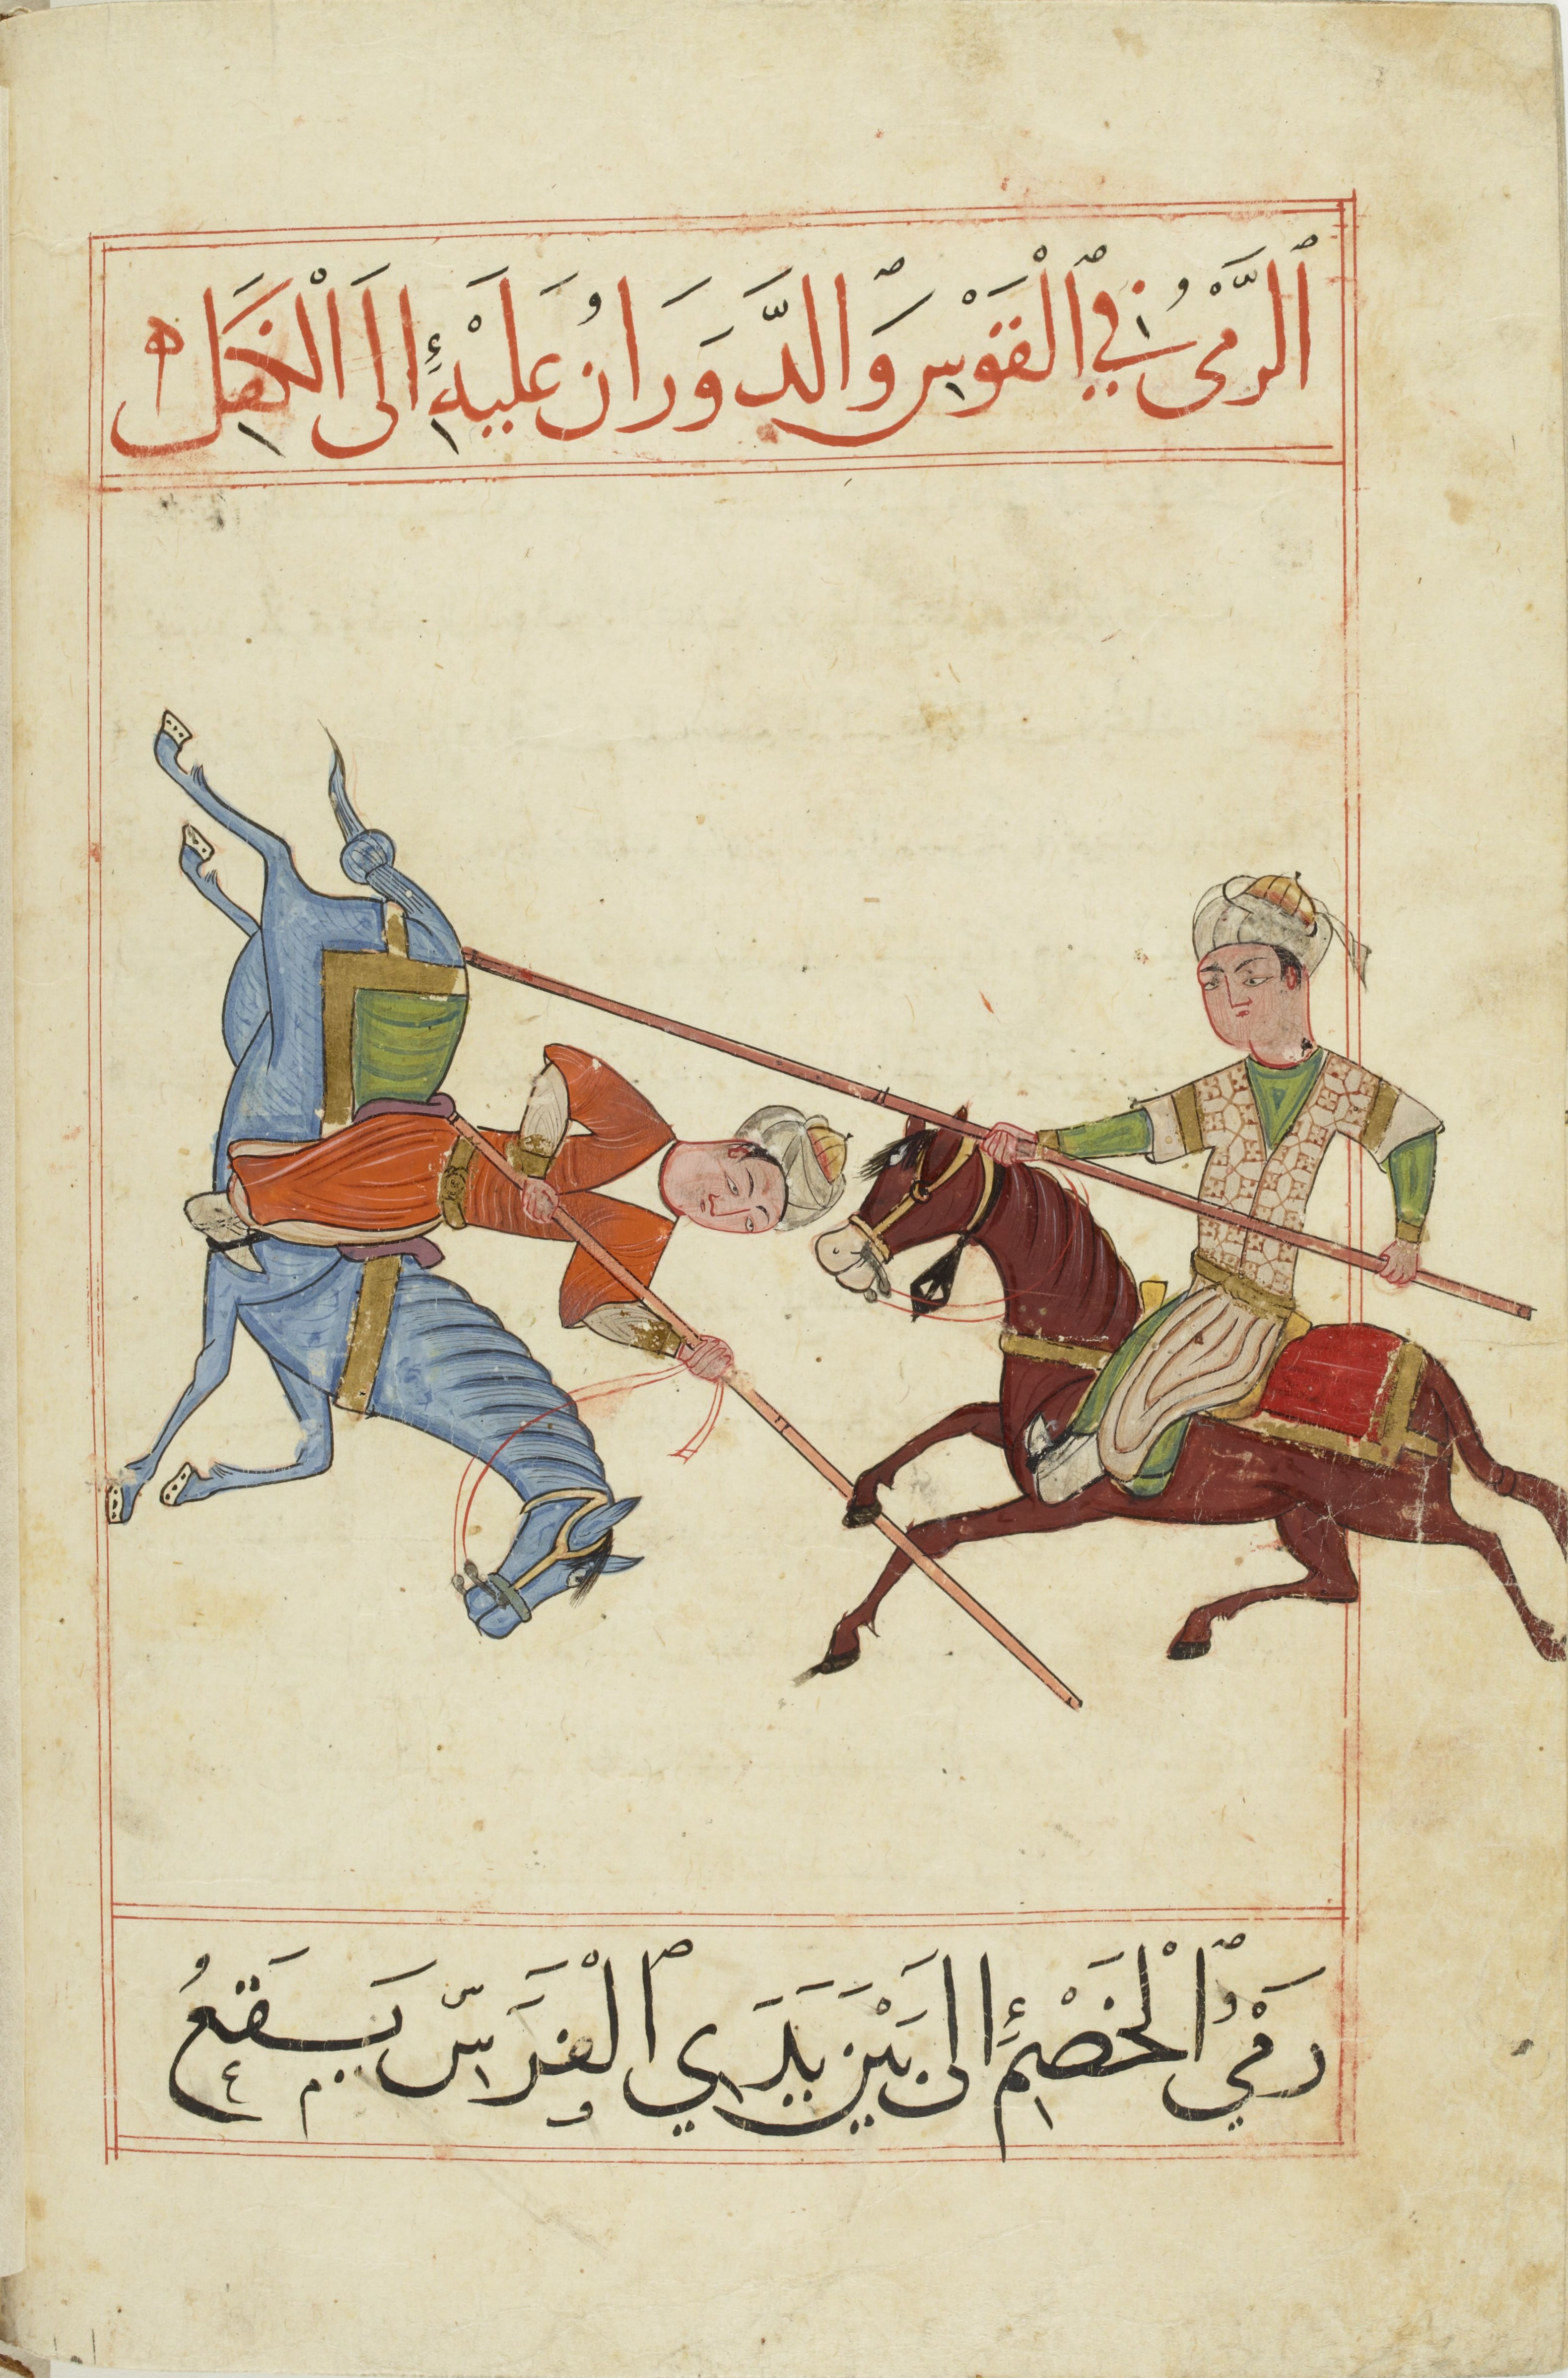 ٱلرَّمْيُ فِي ٱلْقَوْسِ وَالدَّوَرَانُ عَلَيْهِ إِلَى الْخَصْلِ
رَمْيُ ٱلْخَصْمِ إِلَى بَيْنِ يَدَيِ ٱلْفَرَسِ يَقَعُ